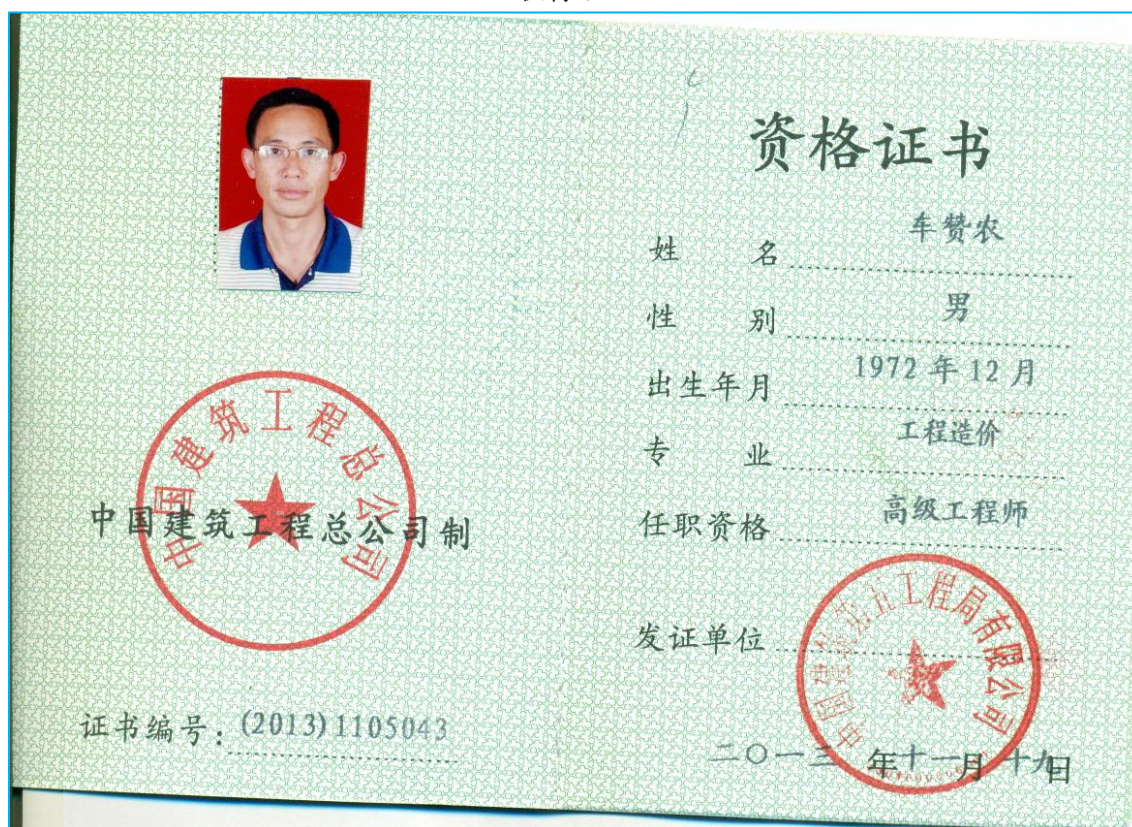 中国建筑工程总公司
中国建筑工程总公司制
证书编号：(2013)1105043
资格证书
姓 名 车赞农
性 别 男
出生年月 1972年12月
专 业 工程造价
任职资格 高级工程师
发证单位
中国建筑第五工程局有限公司
二〇一三年十一月十九日